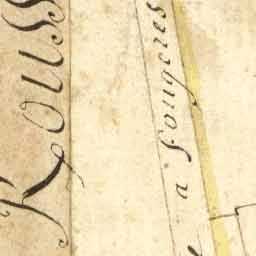 Rouss
a fougeres